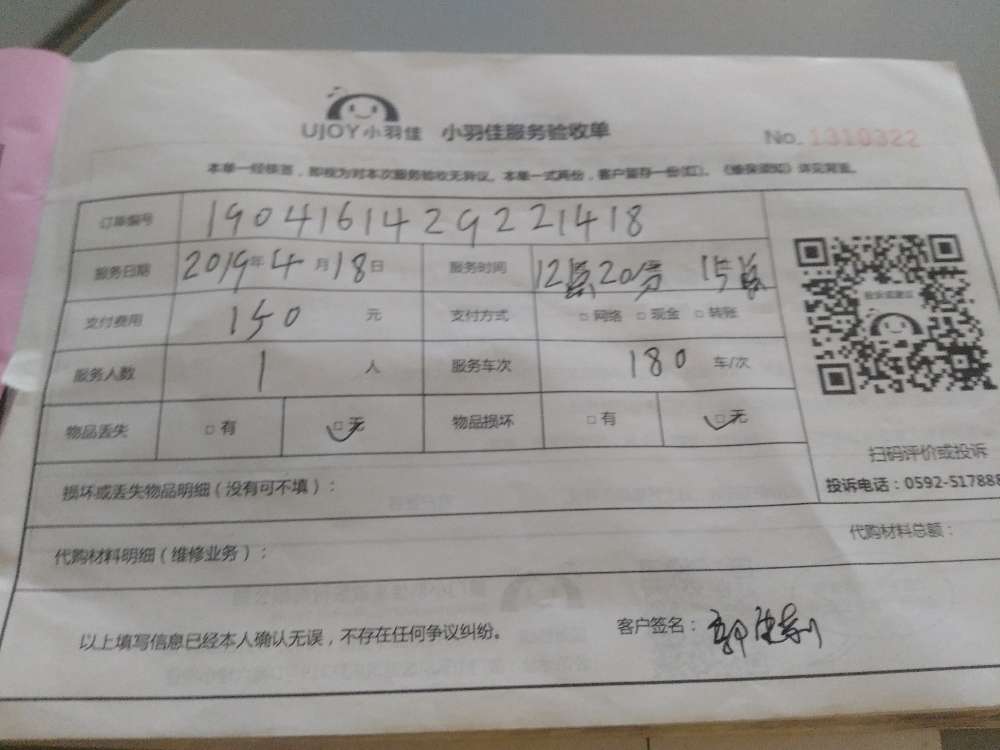 UJOY小羽佳 小羽佳服务验收单 No. 1310322
本单一经核签，即视为对本次服务验收无异议。本单一式两份，客户留存一份(红)。《维保须知》详见背面。
订单编号 1904161429221418
服务日期 2019年4月18日 服务时间 12点20分 15点
支付费用 150 元 支付方式 □网络 □现金 □转账
服务人数 1 人 服务车次 180 车/次
物品丢失 □有 □无 物品损坏 □有 □无
扫码评价或投诉
损坏或丢失物品明细（没有可不填）：
投诉电话：0592-517888
代购材料明细（维修业务）： 代购材料总额：
以上填写信息已经本人确认无误，不存在任何争议纠纷。 客户签名：